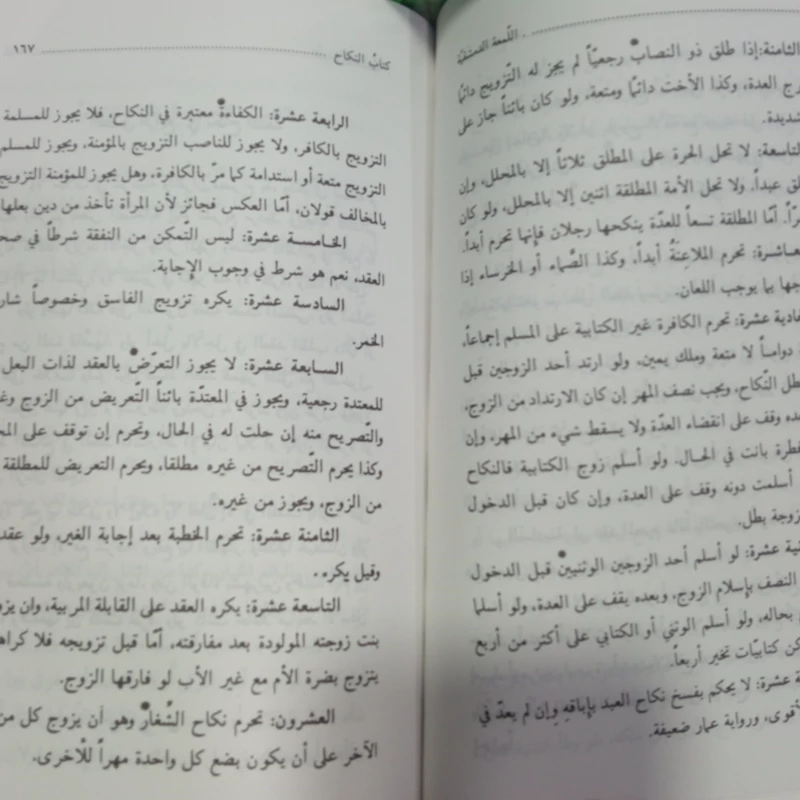 اللّمعة الدمشقيّة
الثامنة: إذا طلق ذو النصاب رجعيّاً لم يجز له التّزويج دائماً
رج العدة، وكذا الأخت دائماً ومتعة، ولو كان بائناً جاز على
شديدة.
التاسعة: لا تحل الحرة على المطلق ثلاثاً إلا بالمحلل، وإن
لق عبداً. ولا تحل الأمة المطلقة اثنين إلا بالمحلل، ولو كان
رّاً. أمّا المطلقة تسعاً للعدّة ينكحها رجلان فإنها تحرم أبداً.
عاشرة: تحرم الملاعنَةُ أبداً، وكذا الصّماء أو الخرساء إذا
جها بما يوجب اللعان.
ادية عشرة: تحرم الكافرة غير الكتابية على المسلم إجماعاً،
دوماً لا متعة وملك يمين، ولو ارتد أحد الزوجين قبل
طل النّكاح، ويجب نصف المهر إن كان الارتداد من الزوج،
ده وقف على انقضاء العدّة ولا يسقط شيء من المهر، وإن
فطرة بانت في الحال. ولو أسلم زوج الكتابية فالنكاح
أسلمت دونه وقف على العدة، وإن كان قبل الدخول
زوجة بطل.
ية عشرة: لو أسلم أحد الزوجين الوثنيين قبل الدخول
النصف بإسلام الزوج، وبعده يقف على العدة، ولو أسلما
بحاله، ولو أسلم الوثني أو الكتابي على أكثر من أربع
كن كتابيّات تخير أربعاً.
ة عشرة: لا يحكم بفسخ نكاح العبد بإباقهِ وإن لم يعدّ في
لأقوى، ورواية عمار ضعيفة.
كتاب النكاح ١٦٧
الرابعة عشرة: الكفاءة معتبرة في النكاح، فلا يجوز للمسلمة
التزويج بالكافر، ولا يجوز للناصب التزويج بالمؤمنة، ويجوز للمسلم
التزويج متعة أو استدامة كما مرّ بالكافرة، وهل يجوز للمؤمنة التزويج
بالمخالف قولان، أمّا العكس فجائز لأن المرأة تأخذ من دين بعلها
الخامسة عشرة: ليس التّمكن من النفقة شرطاً في صح
العقد، نعم هو شرط في وجوب الإجابة.
السادسة عشرة: يكره تزويج الفاسق وخصوصاً شار
الخمر.
السابعة عشرة: لا يجوز التعرّض بالعقد لذات البعل
للمعتدة رجعية، ويجوز في المعتدّة بائناً التّعريض من الزوج وغ
والتّصريح منه إن حلت له في الحال، وتحرم إن توقف على المح
وكذا يحرم التّصريح من غيره مطلقا، ويحرم التعريض للمطلقة
من الزوج، ويجوز من غيره.
الثامنة عشرة: تحرم الخطبة بعد إجابة الغير، ولو عقد
وقيل يكره.
التاسعة عشرة: يكره العقد على القابلة المربية، وان يزو
بنت زوجته المولودة بعد مفارقته، أمّا قبل تزويجه فلا كراه
يتزوج بضرة الأم مع غير الأب لو فارقها الزوج.
العشرون: تحرم نكاح الشّغار وهو أن يزوج كل من
الآخر على أن يكون بضع كل واحدة مهراً للأخرى.